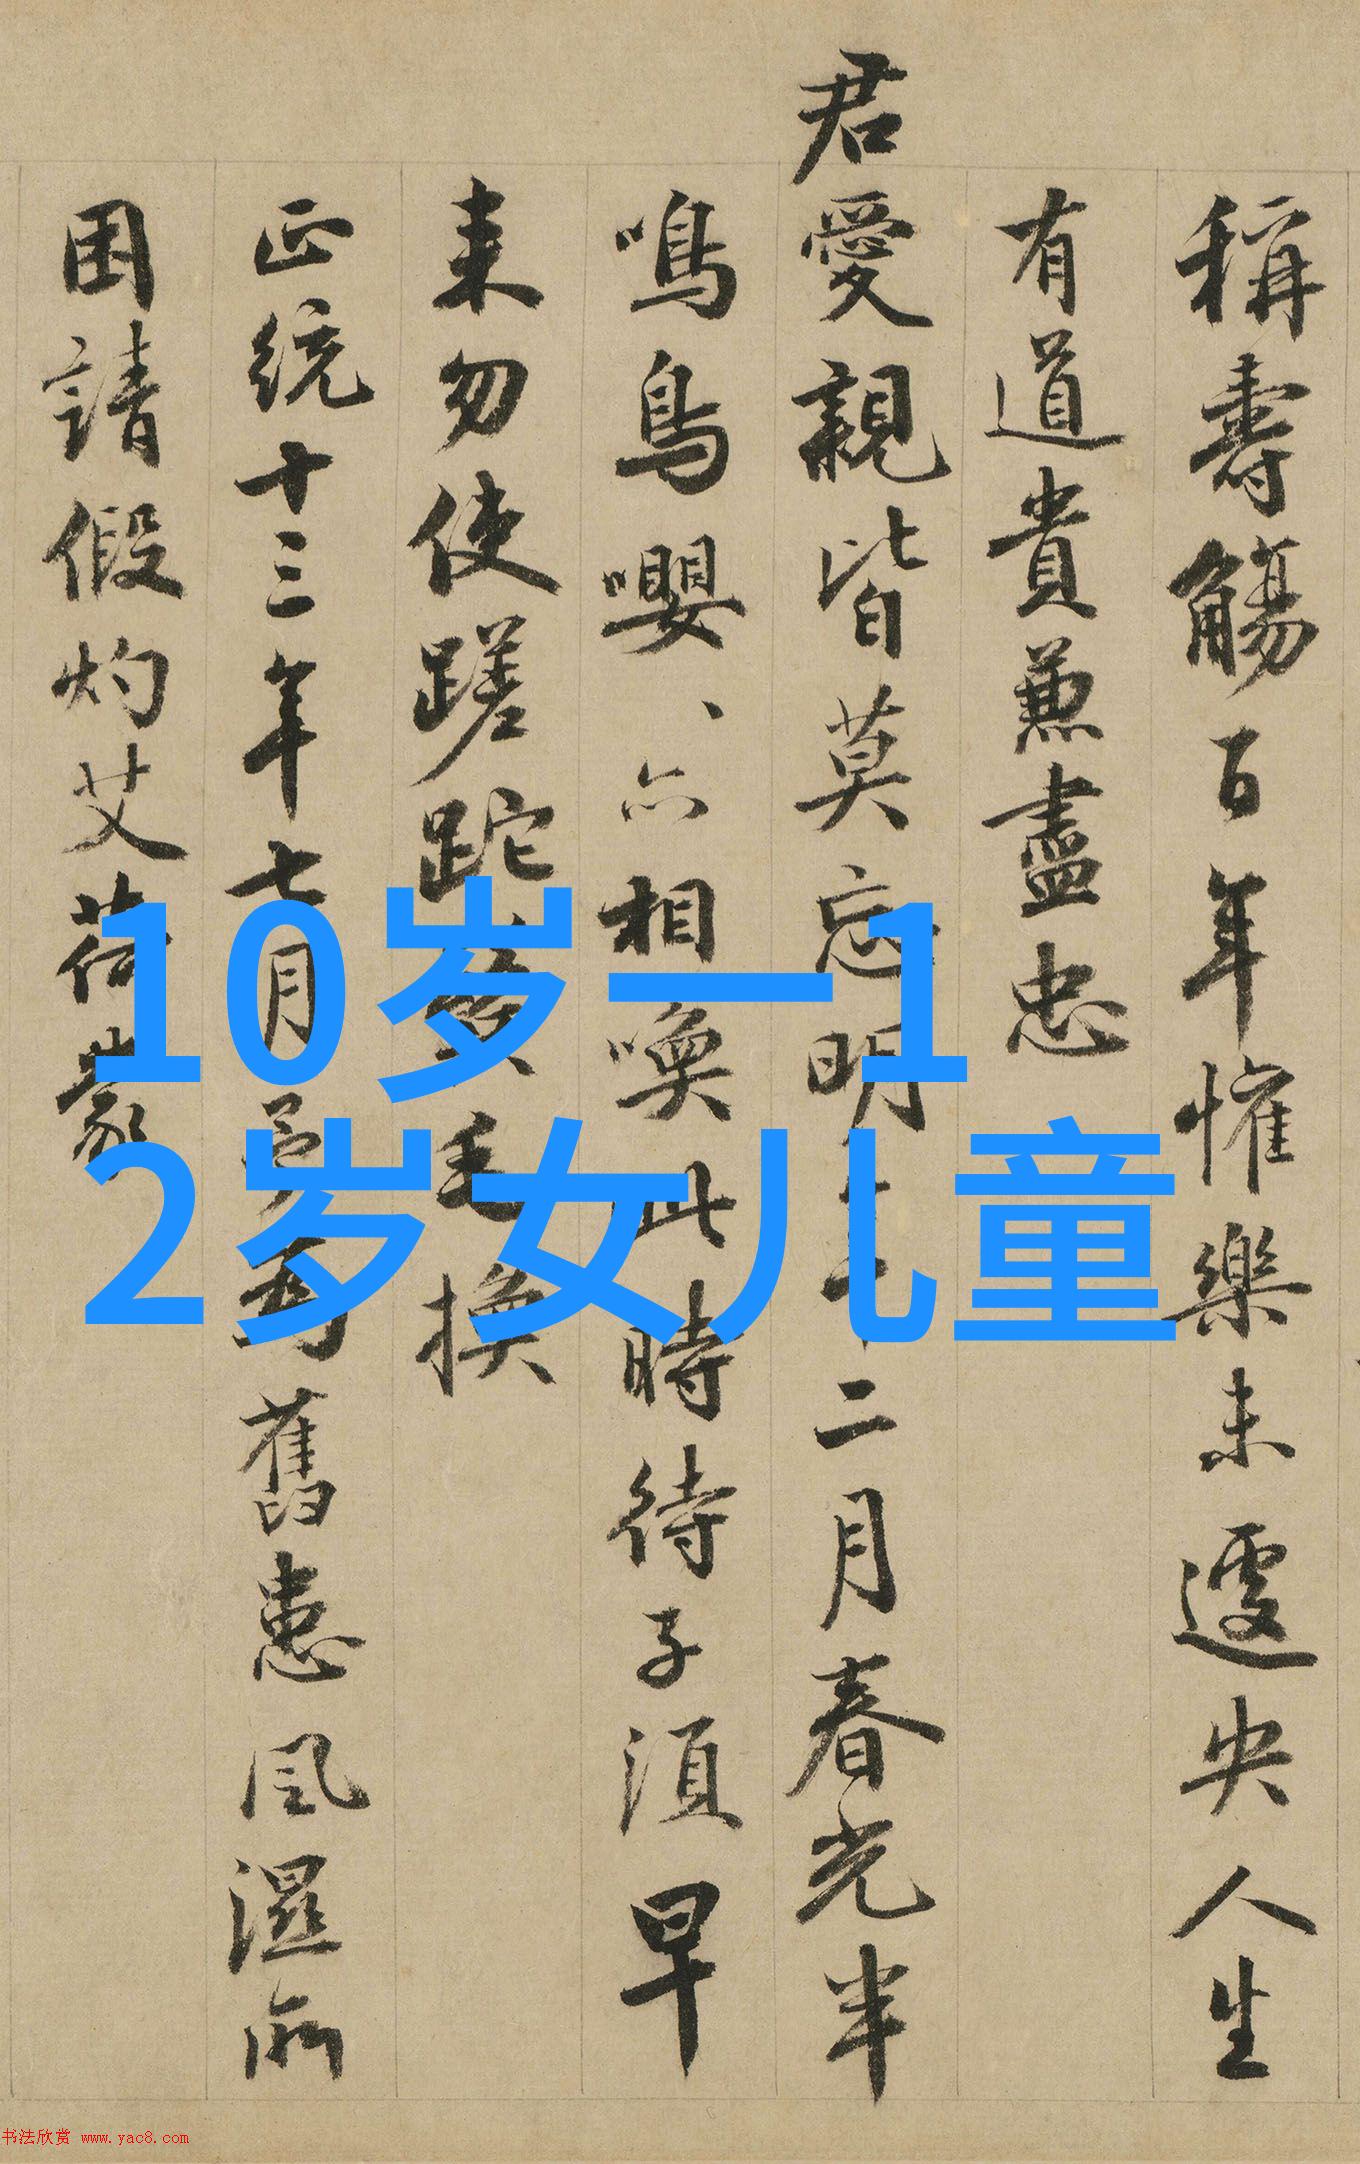 稱壽觴百年懽樂未遽央人生
有道貴兼盡忠
君愛親皆莫忘明年二月春光半
鳴鳥嚶、亦相喚此時待子須早
来勿使蹉跎毛換
正統十三年七月予舊患風濕所
困請假灼艾荷蒙
10岁一1
2岁女儿童
书法欣赏 www.yac8.com